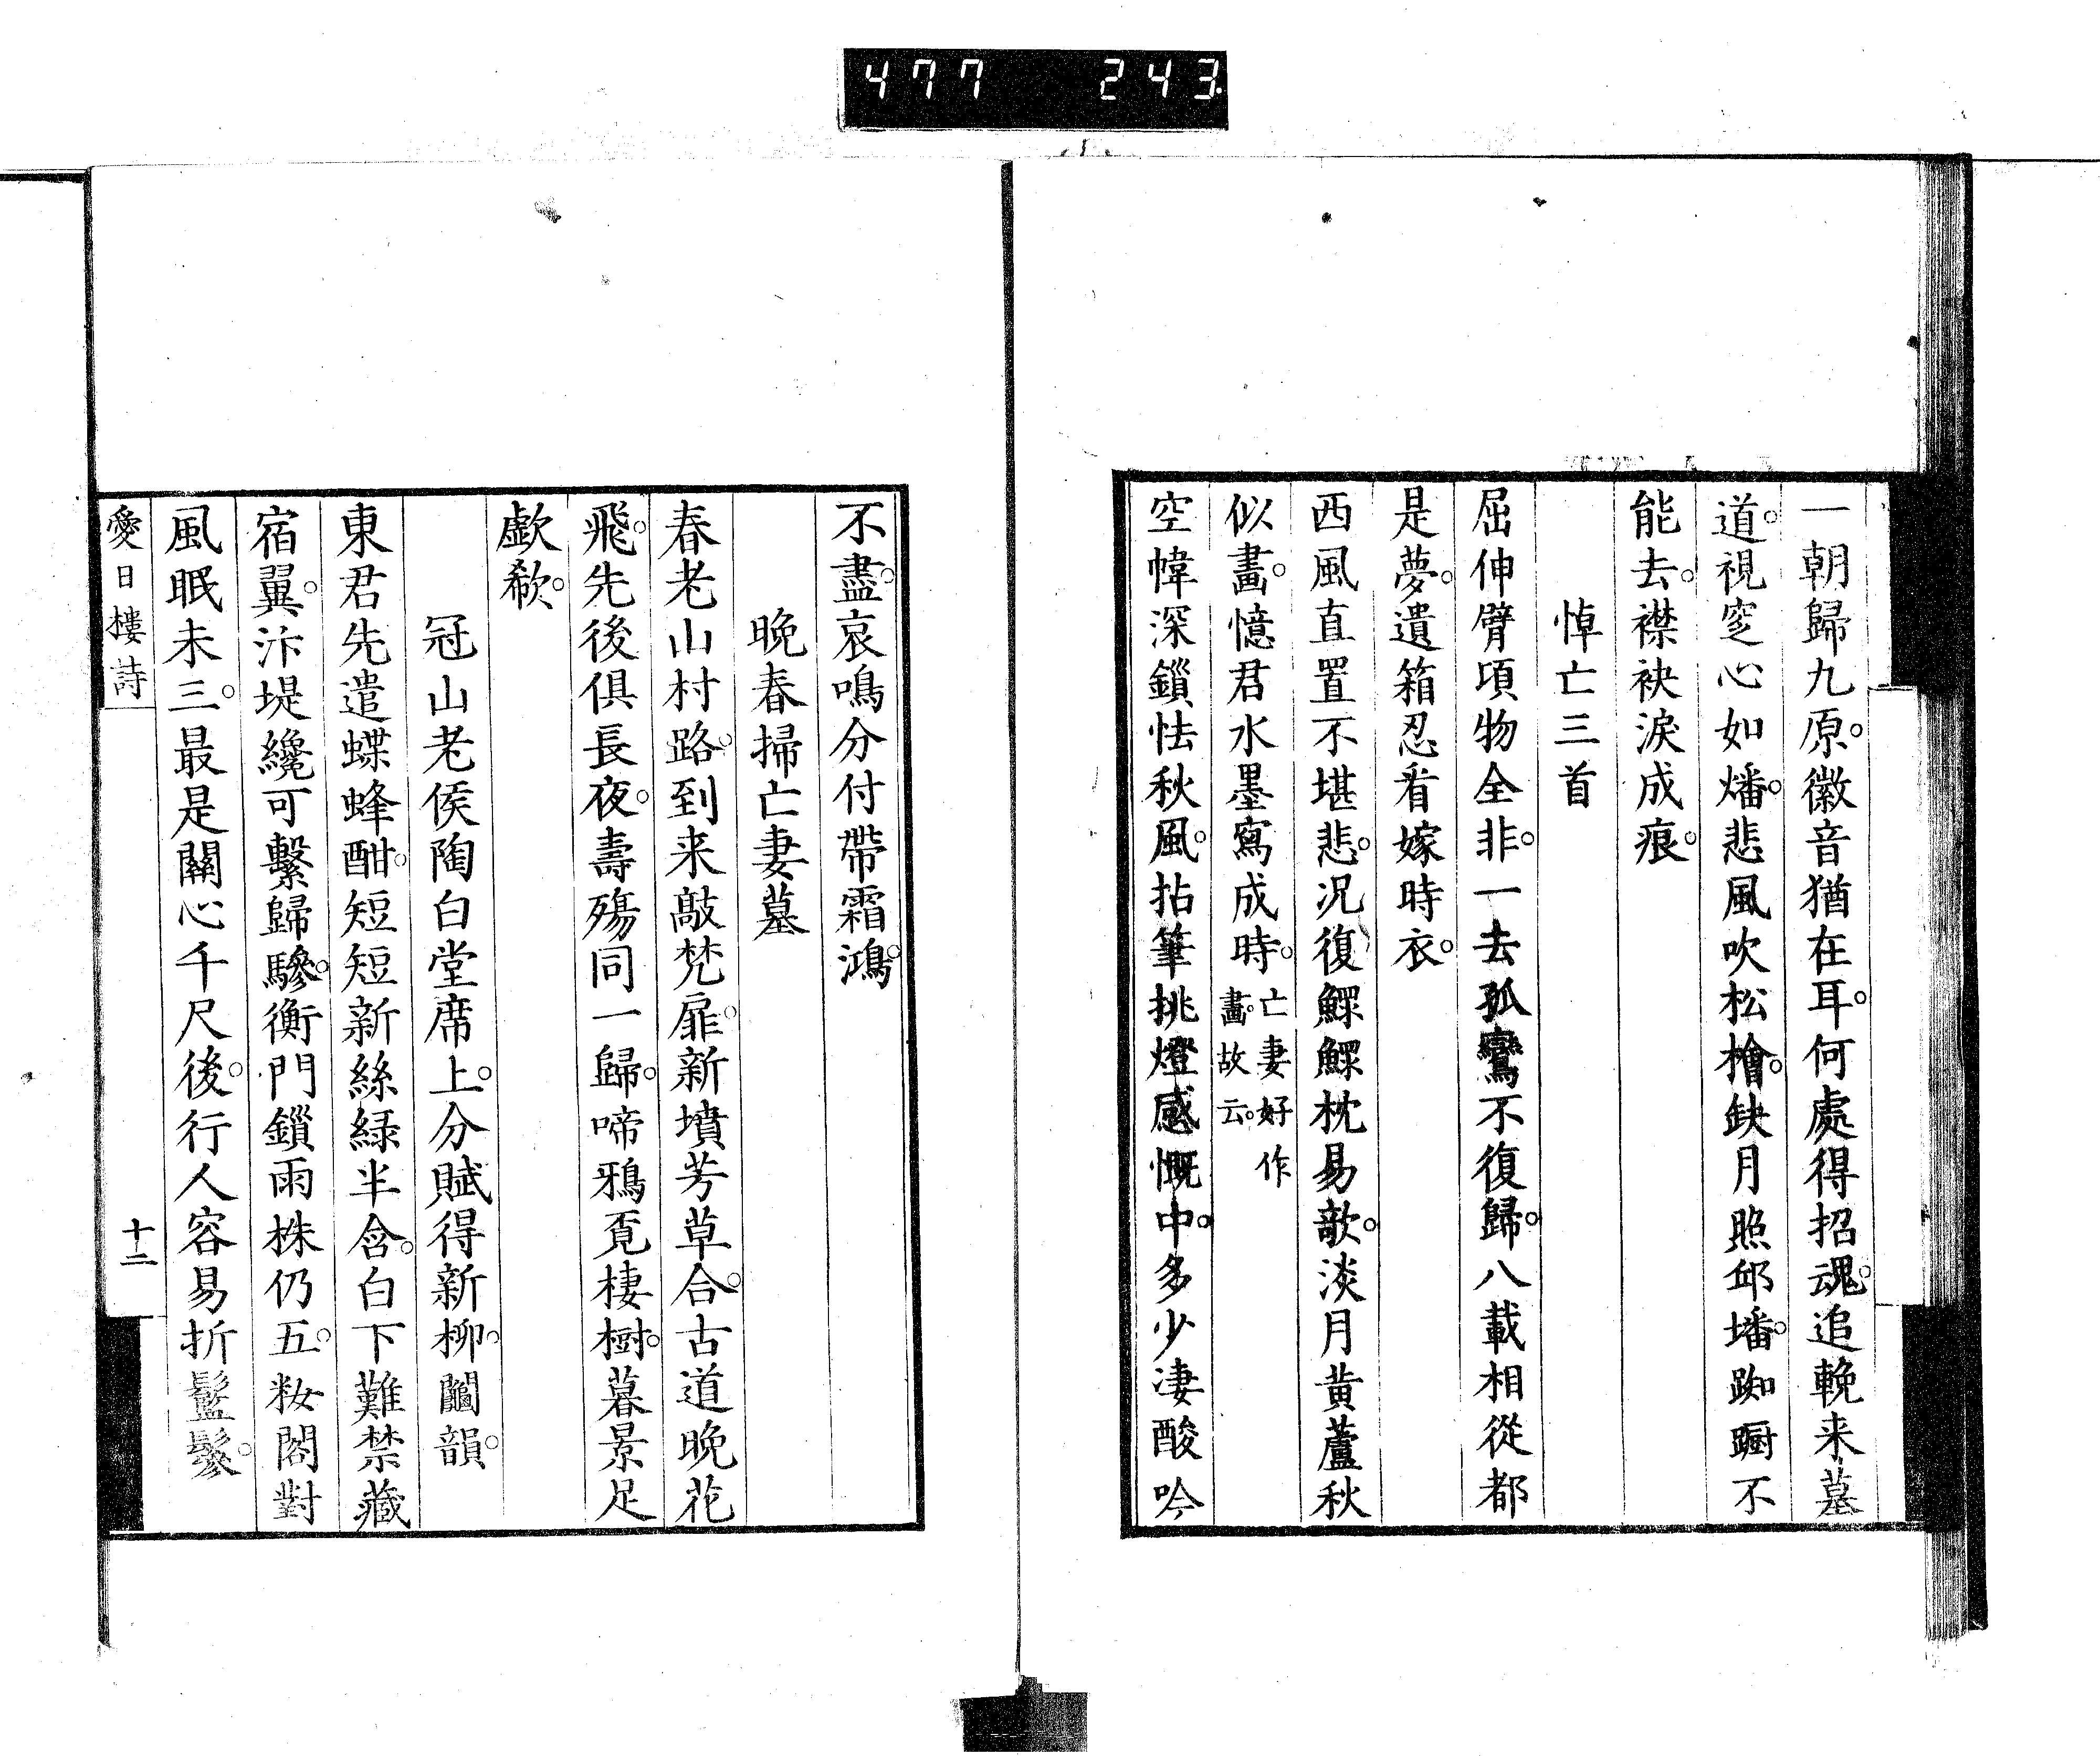 477 243
一朝歸九原。徽音猶在耳。何處得招魂。追輓来墓
道。視窆心如燔。悲風吹松檜。缺月照邱墦。踟躕不
能去。襟袂淚成痕。
悼亡三首
屈伸臂頃物全非。一去孤鸞不復歸。八載相從都
是夢。遺箱忍看嫁時衣。
西風直置不堪悲。况復鰥鰥枕易欹。淡月黄蘆秋
似畵。憶君水墨寫成時。亡妻好作畵。故云。
空幃深鎖怯秋風。拈筆挑燈感慨中。多少凄酸吟
不盡。哀鳴分付帶霜鴻。
晩春掃亡妻墓
春老山村路。到来敲梵扉。新墳芳草合。古道晩花
飛。先後俱長夜。壽殤同一歸。啼鴉覔棲樹。暮景足
歔欷。
冠山老侯陶白堂席上。分賦得新柳。鬮韻。
東君先遣蝶蜂酣。短短新絲緑半含。白下難禁藏
宿翼。汴堤纔可繫歸驂。衡門鎖雨株仍五。粧閣對
風眠未三。最是關心千尺後。行人容易折鬖鬖。
愛日樓詩
十二